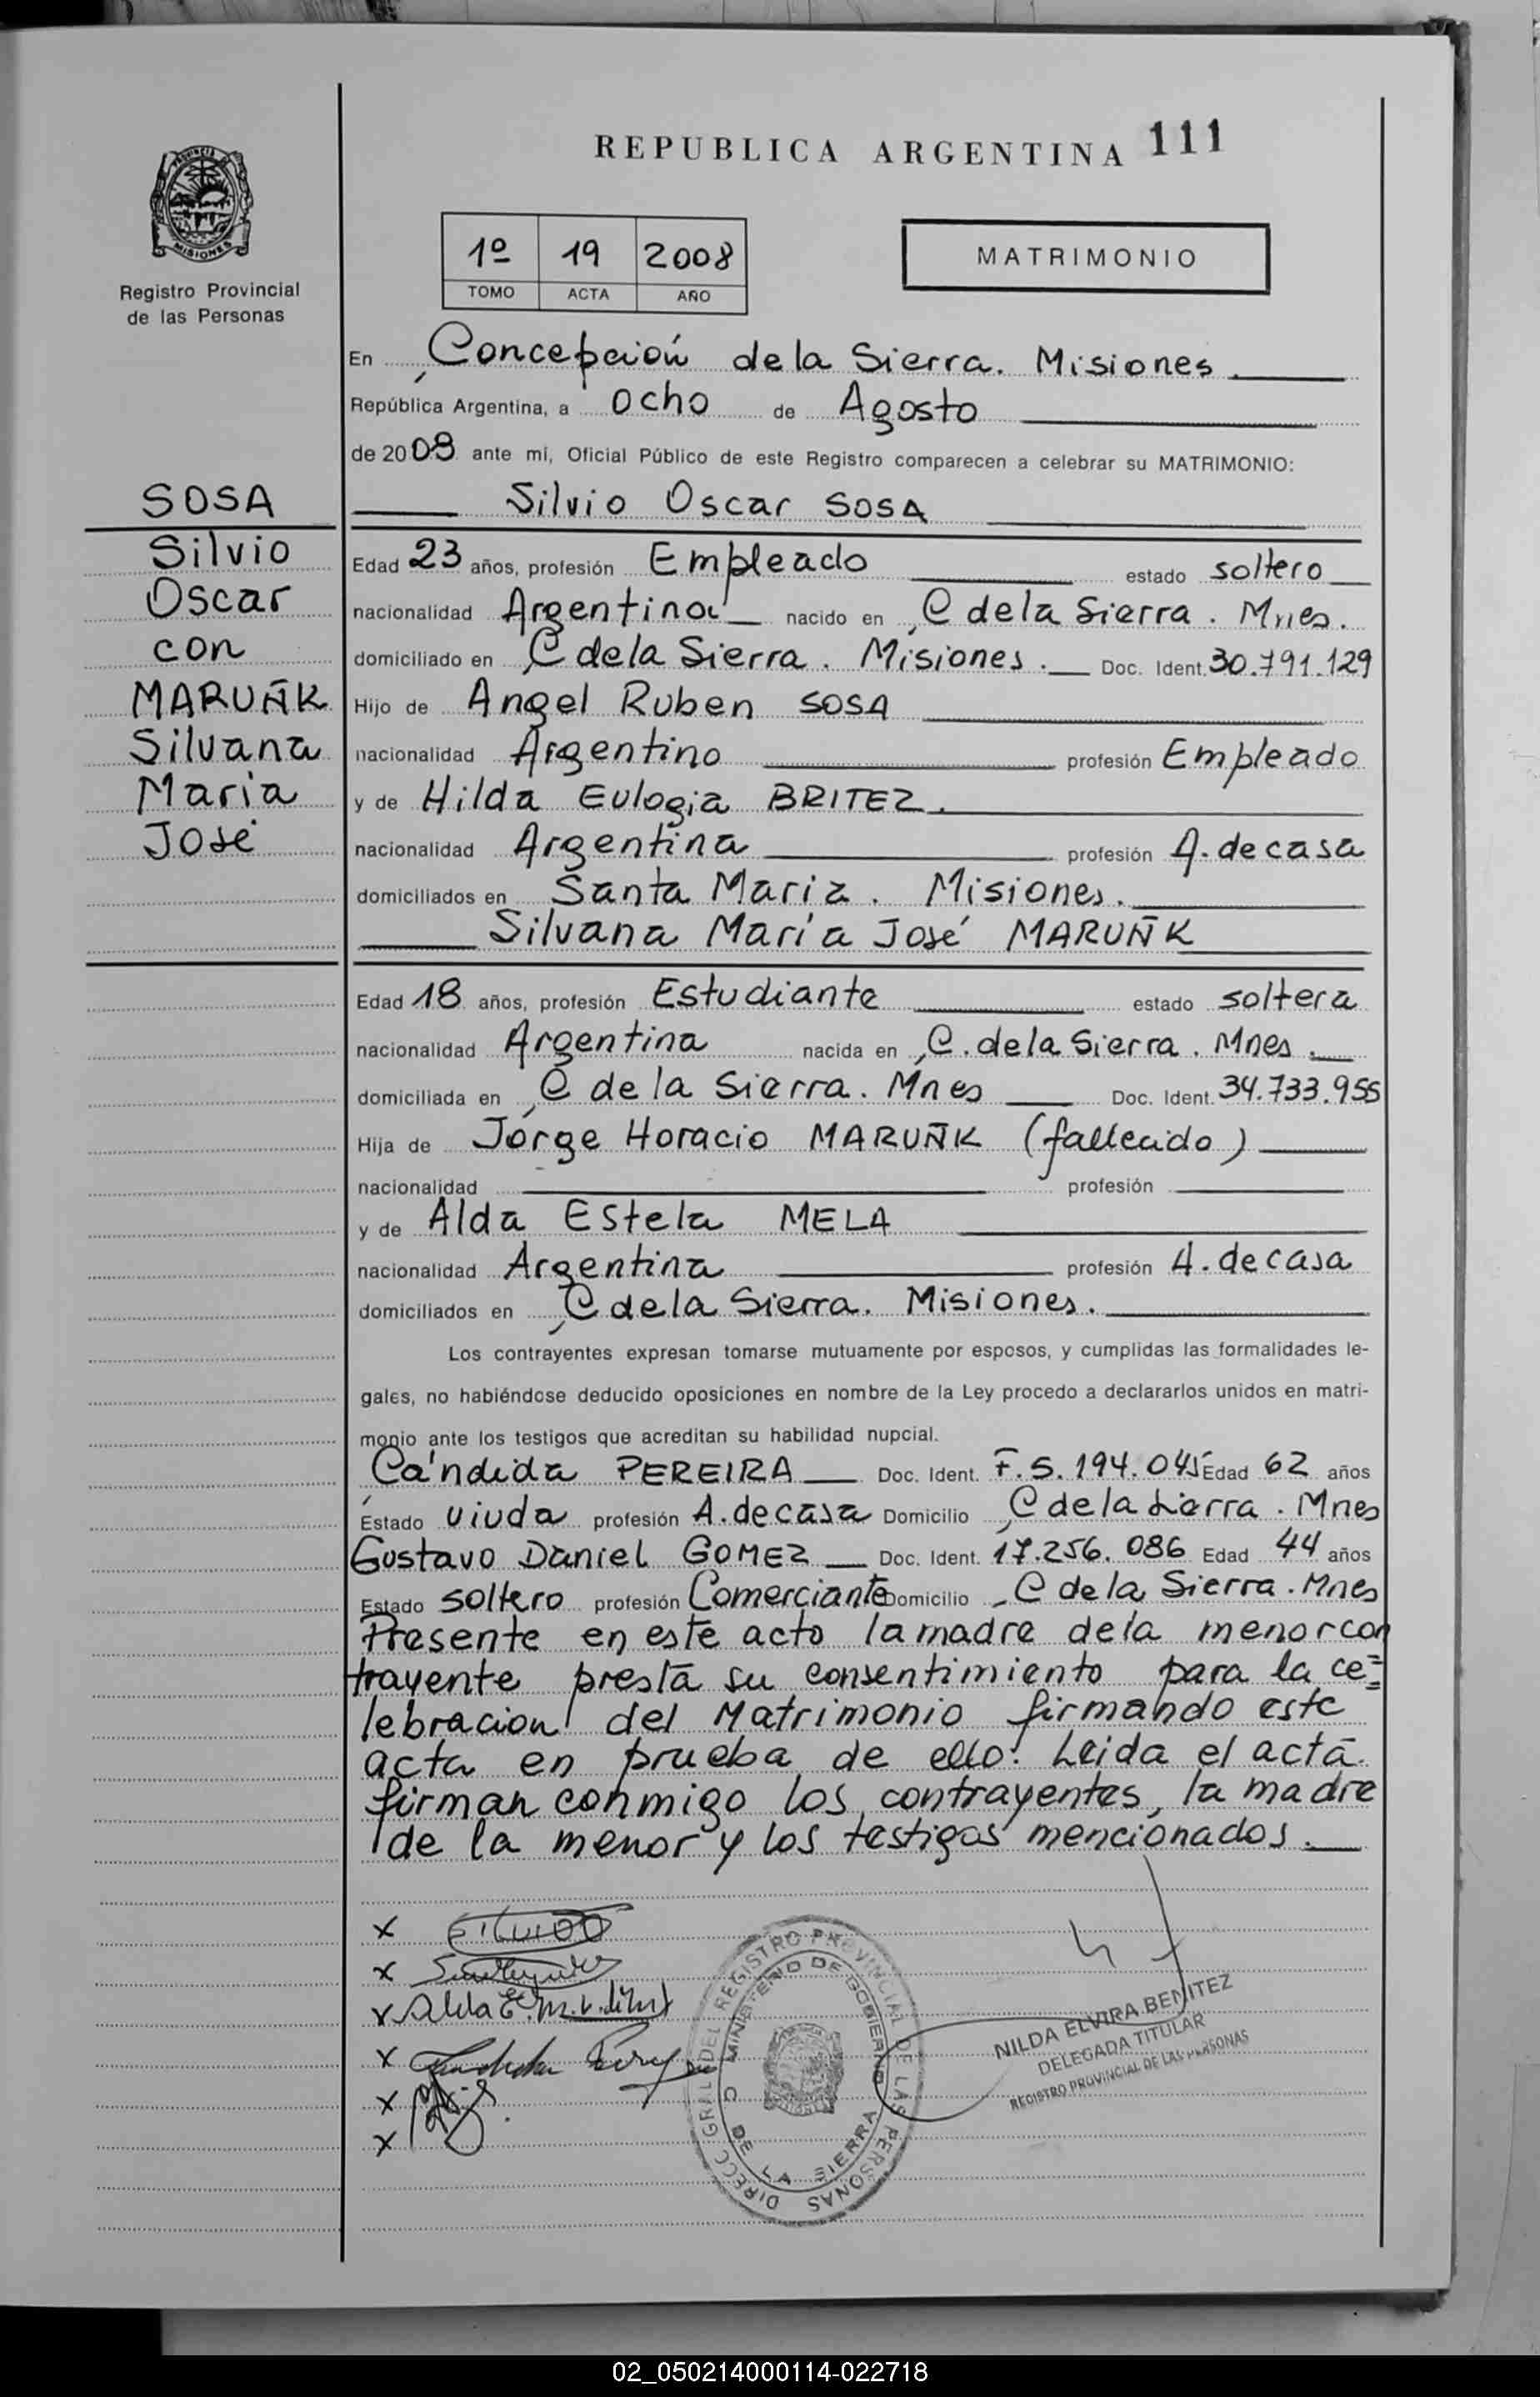 REPUBLICA ARGENTINA 111
PROVINCIA
MISIONES
Registro Provincial
de las Personas
1º 19 2008
TOMO ACTA AÑO
MATRIMONIO
En Concepción de la Sierra. Misiones
República Argentina, a ocho de Agosto
de 2008 ante mí, Oficial Público de este Registro comparecen a celebrar su MATRIMONIO:
SOSA
Silvio
Oscar
con
MARUÑK
Silvana
María
José
Silvio Oscar SOSA
Edad 23 años, profesión Empleado estado soltero
nacionalidad Argentina nacido en C de la Sierra. Mnes.
domiciliado en C de la Sierra. Misiones. Doc. Ident. 30.791.129
Hijo de Angel Ruben SOSA
nacionalidad Argentino profesión Empleado
y de Hilda Eulogia BRITEZ.
nacionalidad Argentina profesión A. de casa
domiciliados en Santa Maria. Misiones.
Silvana María José MARUÑK
Edad 18 años, profesión Estudiante estado soltera
nacionalidad Argentina nacida en C. de la Sierra. Mnes.
domiciliada en C de la Sierra. Mnes Doc. Ident. 34.733.955
Hija de Jorge Horacio MARUÑK (fallecido)
nacionalidad profesión
y de Alda Estela MELA
nacionalidad Argentina profesión A. de casa
domiciliados en C de la Sierra. Misiones.
Los contrayentes expresan tomarse mutuamente por esposos, y cumplidas las formalidades le-
gales, no habiéndose deducido oposiciones en nombre de la Ley procedo a declararlos unidos en matri-
monio ante los testigos que acreditan su habilidad nupcial.
Cándida PEREIRA Doc. Ident. F. 5.194.045 Edad 62 años
Estado viuda profesión A. de casa Domicilio C de la Sierra. Mnes
Gustavo Daniel GOMEZ Doc. Ident. 17.256.086 Edad 44 años
Estado soltero profesión Comerciante Domicilio C de la Sierra. Mnes
Presente en este acto la madre de la menor con
trayente presta su consentimiento para la ce=
lebracion del Matrimonio firmando este
acta en prueba de ello. Leida el acta
firman conmigo los contrayentes, la madre
de la menor y los testigos mencionados.
x
x
x Alda E.
x
x
x
DIRECC GRAL DEL REGISTRO PROVINCIAL DE LAS PERSONAS
MINISTERIO DE GOBIERNO
C DE LA SIERRA
NILDA ELVIRA BENITEZ
DELEGADA TITULAR
REGISTRO PROVINCIAL DE LAS PERSONAS
02_050214000114-022718